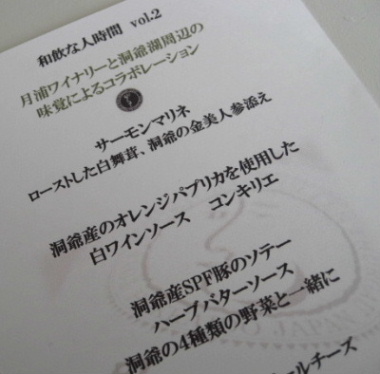 和飲な人時間 vol.2
月浦ワイナリーと洞爺湖周辺の
味覚によるコラボレーション
サーモンマリネ
ローストした白舞茸、洞爺の金美人参添え
洞爺産のオレンジパプリカを使用した
白ワインソース コンキリエ
洞爺産SPF豚のソテー
ハーブバターソース
洞爺の4種類の野菜と一緒に
チーズ